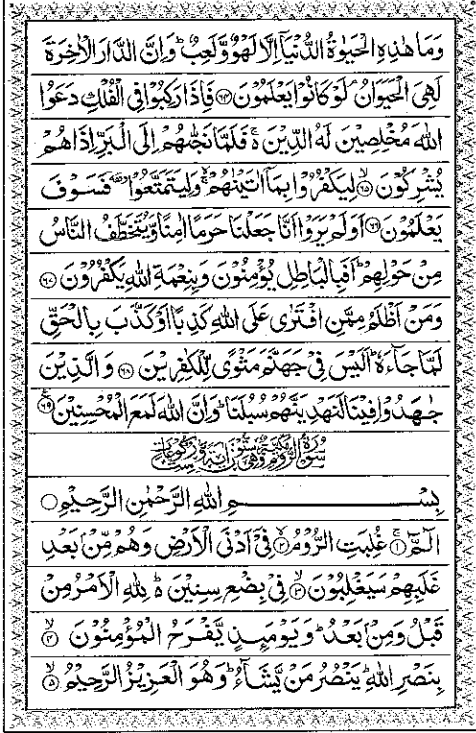 وَمَا هٰذِهِ الْحَيٰوةُ الدُّنْيَاۤ اِلَّا لَهْوٌ وَّلَعِبٌ ؕ وَاِنَّ الدَّارَ الْاٰخِرَةَ
لَهِيَ الْحَيَوَانُ ۘ لَوْ كَانُوْا يَعْلَمُوْنَ ﴿۶۴﴾ فَاِذَا رَكِبُوْا فِي الْفُلْكِ دَعَوُا
اللّٰهَ مُخْلِصِيْنَ لَهُ الدِّيْنَ ەۚ فَلَمَّا نَجّٰىهُمْ اِلَى الْبَرِّ اِذَا هُمْ
يُشْرِكُوْنَ ﴿۶۵﴾ۙ لِيَكْفُرُوْا بِمَاۤ اٰتَيْنٰهُمْ ۚۙ وَلِيَتَمَتَّعُوْا ۥ فَسَوْفَ
يَعْلَمُوْنَ ﴿۶۶﴾ اَوَلَمْ يَرَوْا اَنَّا جَعَلْنَا حَرَمًا اٰمِنًا وَّيُتَخَطَّفُ النَّاسُ
مِنْ حَوْلِهِمْ ؕ اَفَبِالْبَاطِلِ يُؤْمِنُوْنَ وَبِنِعْمَةِ اللّٰهِ يَكْفُرُوْنَ ﴿۶۷﴾
وَمَنْ اَظْلَمُ مِمَّنِ افْتَرٰى عَلَى اللّٰهِ كَذِبًا اَوْ كَذَّبَ بِالْحَقِّ
لَمَّا جَآءَهٗ ؕ اَلَيْسَ فِيْ جَهَنَّمَ مَثْوًى لِّلْكٰفِرِيْنَ ﴿۶۸﴾ وَالَّذِيْنَ
جٰهَدُوْا فِيْنَا لَنَهْدِيَنَّهُمْ سُبُلَنَا ؕ وَاِنَّ اللّٰهَ لَمَعَ الْمُحْسِنِيْنَ ﴿۶۹﴾
سُوْرَةُ الرُّوْمِ مَكِّيَّةٌ وَّهِيَ سِتُّوْنَ اٰيَةً وَّسِتُّ رُكُوْعَاتٍ
بِسْمِ اللّٰهِ الرَّحْمٰنِ الرَّحِيْمِ
الٓمّٓ ﴿۱﴾ۚ غُلِبَتِ الرُّوْمُ ﴿۲﴾ۙ فِيْۤ اَدْنَى الْاَرْضِ وَهُمْ مِّنْۢ بَعْدِ
غَلَبِهِمْ سَيَغْلِبُوْنَ ﴿۳﴾ۙ فِيْ بِضْعِ سِنِيْنَ ەؕ لِلّٰهِ الْاَمْرُ مِنْ
قَبْلُ وَمِنْۢ بَعْدُ ؕ وَيَوْمَئِذٍ يَّفْرَحُ الْمُؤْمِنُوْنَ ﴿۴﴾ۙ
بِنَصْرِ اللّٰهِ ؕ يَنْصُرُ مَنْ يَّشَآءُ ؕ وَهُوَ الْعَزِيْزُ الرَّحِيْمُ ﴿۵﴾ۙ